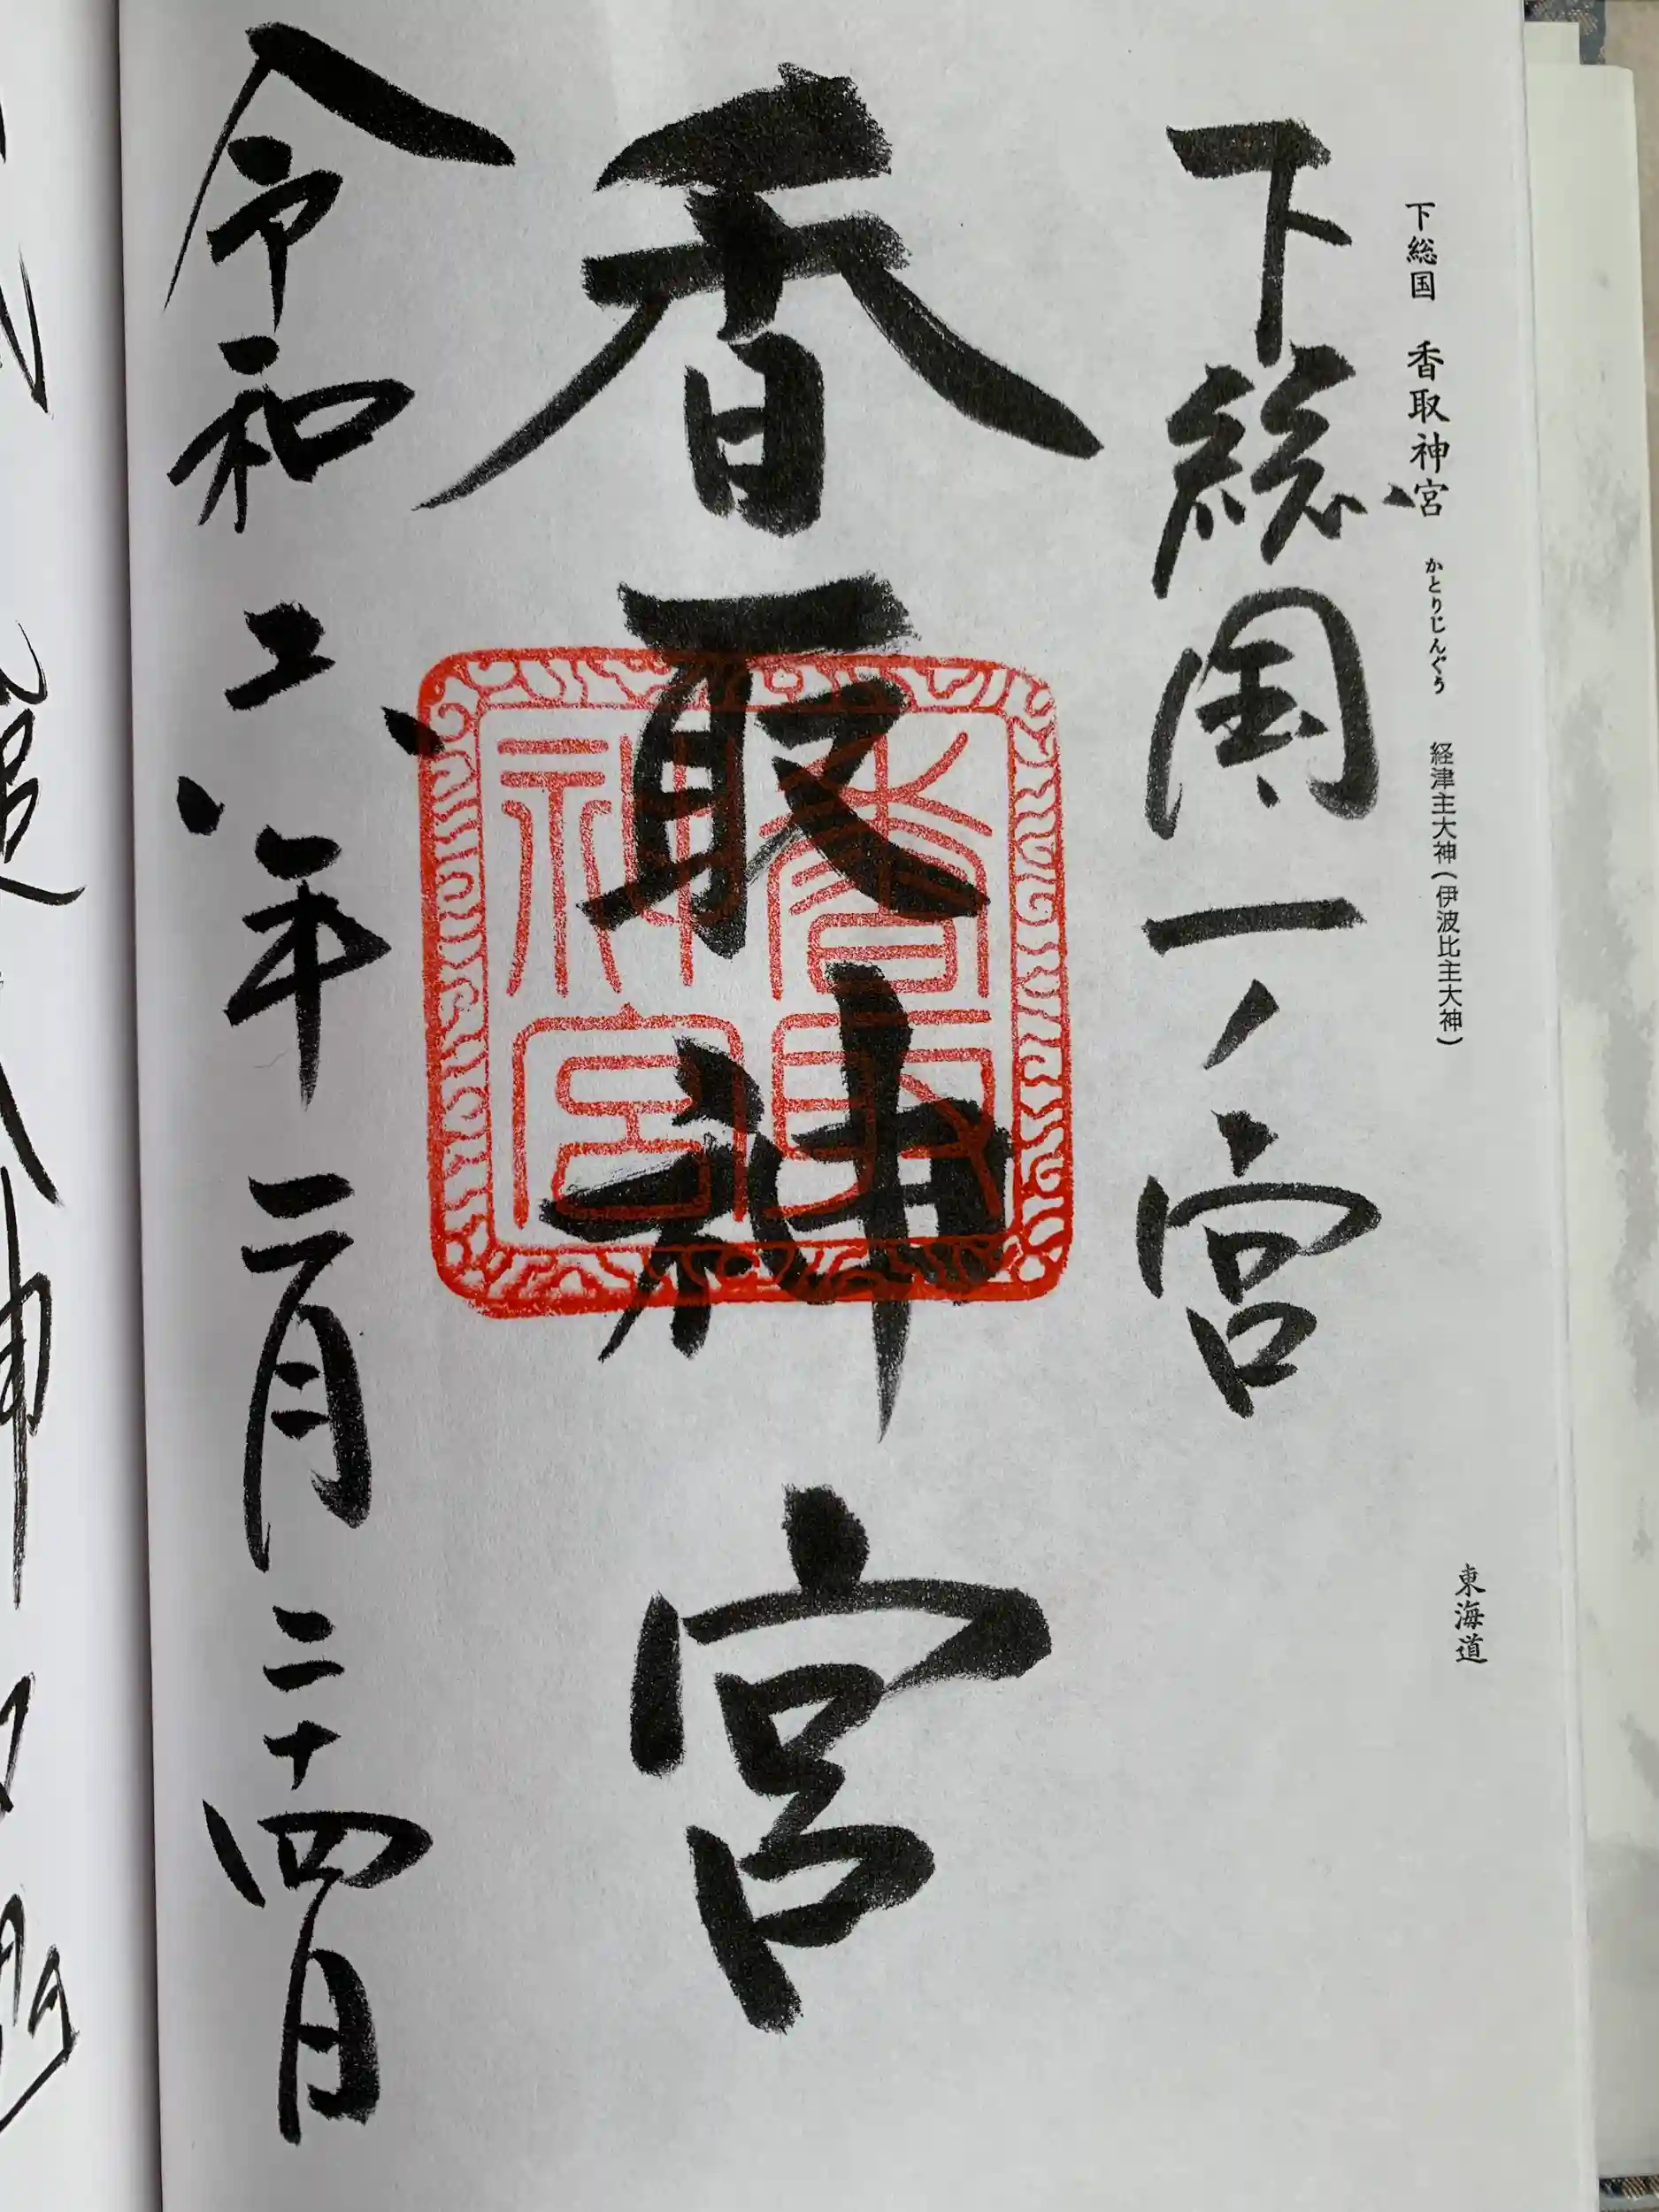 下総国 香取神宮 かとりじんぐう 経津主大神(伊波比主大神) 東海道
下総国一ノ宮
香取神宮
香取神宮
令和六年二月二十四日